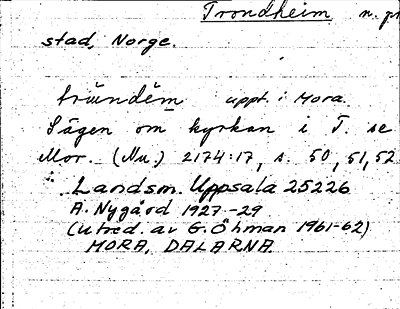 Trondheim n. pr
stad, Norge.
tründèm uppt. i Mora.
Sägen om kyrkan i T. se
Mor. (Nu.) 2174:17, s. 50, 51, 52
Landsm. Uppsala 25226
A. Nygård 1927-29
(utred. av G. Öhman 1961-62)
MORA, DALARNA